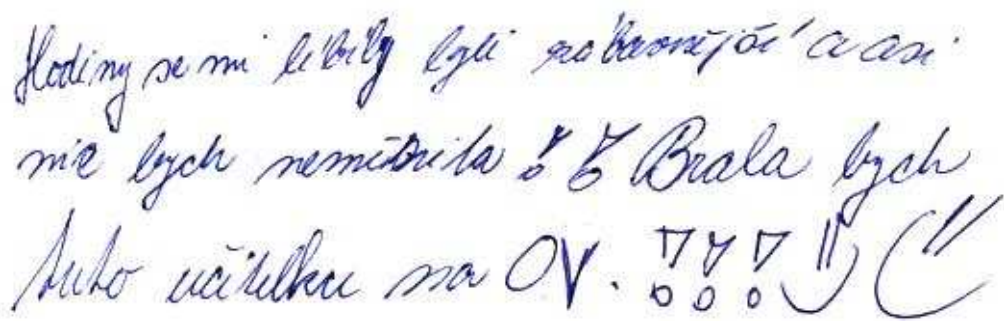 Hodiny se mi líbily byli zábavnější a asi
nic bych neměnila !! Brala bych
tuto učitelku na OV. !!!